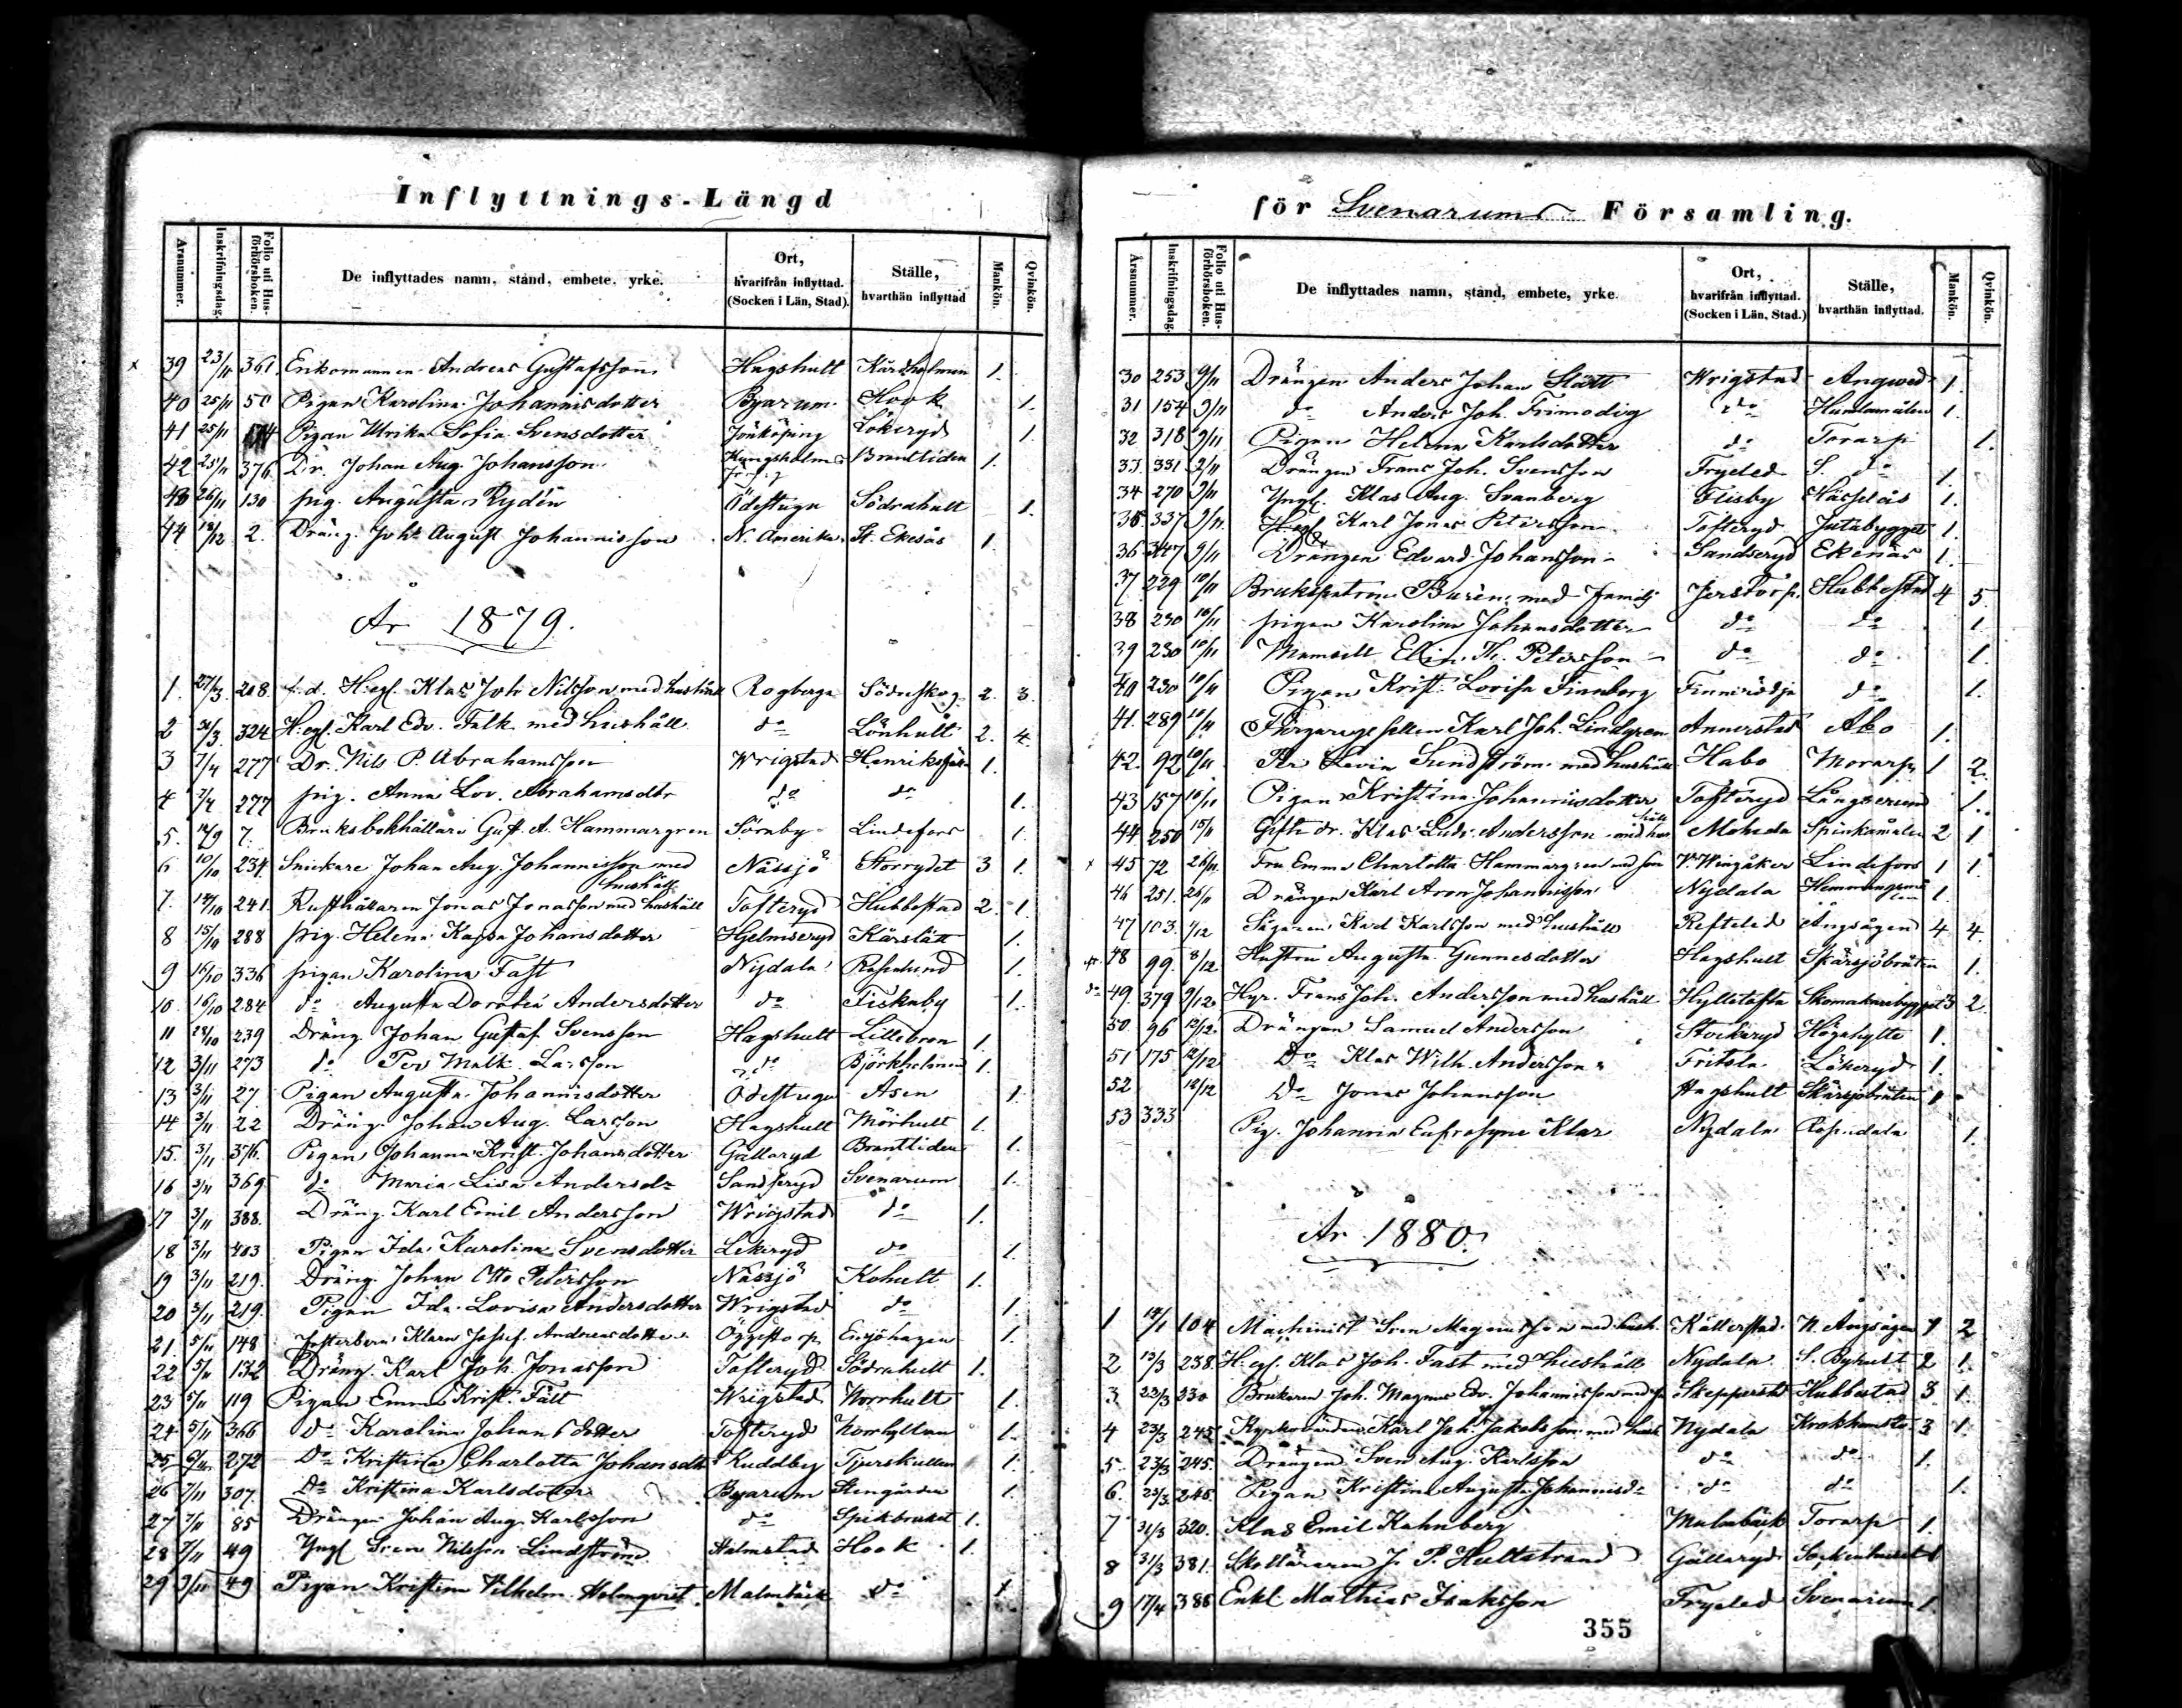 Inflyttnings-Längd
Årsnummer. Inskrifningsdag. Folio uti Husförhörsboken. De inflyttades namn, stånd, embete, yrke. Ort, hvarifrån inflyttad. (Socken i Län, Stad). Ställe, hvarthän inflyttad Mankön. Qvinkön.
x 39 23/11 361. Enkomannen Andreas Gustafsson Hagshult Kärdholmen 1.
40 25/11 50 Pigan Karolina Johannisdotter Byarum Hook 1.
41 25/11 Pigan Ulrika Sofia Svensdotter Jönköping Lökeryd 1.
42 25/11 376 Dr. Johan Aug. Johansson Kungsholm Brantliden 1.
43 26/11 130 pig. Augusta Rydén Ödestugu Södrahult 1.
44 18/12 2. Dräng. Joh. August Johannisson N. Amerika St. Ekesås 1.
År 1879.
1. 27/3. 208. f.d. H.egl. Klas Joh Nilsson med hushåll Rogberga Södreskog 2. 3.
2 31/3. 324 H.egl. Karl Edv. Falk med hushåll do Lönhult 2. 4.
3 7/4 277 Dr. Nils P. Abrahamsson Wrigstad 1.
4 7/4 277 pig. Anna Lov. Abrahamsdtr do do 1.
5. 12/9 7. Bruksbokhållare Gust. A. Hammargren Sörnby Lindefors 1.
6 10/10 234. Snickare Johan Aug. Johannisson med hushåll Nässjö Storrydet 3 1.
7. 14/10 241. Rusthållaren Jonas Jonasson med hushåll Tofteryd Hubbestad 2. 1.
8 15/10 288 pig. Helena Kajsa Johansdotter Hjelmseryd Kärslätt 1.
9 16/10 336 pigan Karolina Fast Nydala Rosenlund 1.
10 16/10 284 do Augusta Dorotea Andersdotter do Fiskaby 1.
11 28/10 239 Dräng Johan Gustaf Svensson Hagshult Lillebron 1.
12 3/11 273 do Per Malk. Larsson do Björkholmen 1.
13 3/11 27 Pigan Augusta Johannisdotter Ödestugu Åsen 1.
14 3/11 22 Dräng Johan Aug. Larsson Hagshult Mörhult 1.
15. 3/11 376. Pigan Johanna Krist. Johansdotter Gällaryd Brantliden 1.
16 3/11 369 do Maria Lisa Andersdr Sandseryd Svenarum 1.
17 3/11 388. Dräng. Karl Emil Andersson Wrigstad do 1.
18 3/11 403 Pigan Ida Karolina Svensdotter Lekeryd do 1.
19 3/11 219. Dräng. Johan Otto Petersson Nässjö Kohult 1.
20 3/11 219. Pigan Ida Lovisa Andersdotter Wrigstad do 1.
21. 5/11 148 Fosterbarn Klara Josef. Andreasdotter Öggestorp Ensjöhagen 1.
22 5/11 132 Dräng. Karl Joh. Jonasson Tofteryd Södrahult 1.
23 5/11 119 Pigan Emma Krist. Fält Wrigstad Norrhult 1.
24 5/11 366 do Karolina Johansdotter Tofteryd Norrhyltan 1.
25 6/11 272 Do Kristina Charlotta Johansdtr Kuddby Tjurskullen 1.
26 7/11 307. Do Kristina Karlsdotter Byarum Stengården 1.
27 7/11 85 Drängen Johan Aug. Karlsson do Spikbruket 1.
28 7/11 49 Yngl Sven Nilsson Lindström Halmstad Hook 1.
29 9/11 49 Pigan Kristina Vilhelm. Holmqvist Malmbäck do 1
för Svenarums Församling.
Årsnummer. Inskrifningsdag. Folio uti Husförhörsboken. De inflyttades namn, stånd, embete, yrke. Ort, hvarifrån inflyttad. (Socken i Län, Stad.) Ställe, hvarthän inflyttad. Mankön. Qvinkön.
30 253 9/11 Drängen Anders Johan Slätt Wrigstad Angwed 1.
31 154 9/11 do Anders Joh. Frimodig do Hundamålen 1.
32 318 9/11 Pigan Helena Karlsdotter do Torarp 1.
33. 331 9/11 Drängen Frans Joh. Svensson Fryeled S. do 1.
34 270 9/11 Yngl. Klas Aug. Svanberg Flisby Hässleås 1.
35. 337 9/11. H.egl. Karl Jonas Petersson Tofteryd Jutabygget 1.
36 347 9/11 Drängen Edvard Johansson Sandseryd Ekenäs 1.
37 229 10/11 Brukspatron Burén med familj Jerstorp. Hubbestad 4 5.
38 230 10/11 pigan Karolina Johansdotter do do 1
39 230 10/11 Mamsell Elin Th. Petersson do do 1.
40 230 10/11 Pigan Krist. Lovisa Finnborg Finnerödja do 1.
41. 289 10/11 Färgaregesellen Karl Joh. Lindgren Annerstad Åbo 1.
42. 92 10/11 Per Levin Sundström med hushåll Habo Morarp 1 2.
43 157 10/11 Pigan Kristina Johannisdotter Tofteryd Långserum 1.
44 250 15/11 Gifte dr. Klas Ludv. Andersson med hushåll Moheda Spinkamålen 2 1
x 45 72 26/11. Fru Emma Charlotta Hammargren med son W. Wingåker Lindefors 1 1.
46 251. 26/11 Drängen Karl Aron Johannisson Nydala 1.
47 103. 1/12 Sågaren Karl Karlsson med hushåll Refteled Ängsågen 4 4.
48 99. 8/12. Hustru Augusta Gunnesdotter Hagshult Skärsjöbråten 1.
do 49. 379 9/12. Hyr. Frans Joh. Andersson med hushåll Hylletofta Skomakarebygget 3 2.
50. 96 12/12. Drängen Samuel Andersson Stockaryd Högahylte 1.
51 175 12/12 Do Klas Wilh. Andersson Fritsla Lökeryd 1.
52 12/12 Do Jonas Johansson Hagshult Skärsjöbråten 1
53 333 Pig. Johanna Eufrosyne Klar Nydala Rosendala 1.
År 1880.
1 14/1 104 Machinist Sven Magnusson med hush. Källerstad. N. Ängsågen 1 2
2 13/3 238. H.egl. Klas Joh. Fast med hushåll Nydala S. Byhult 2 1.
3 22/3 230 Brukaren Joh. Magnus Edv. Johannisson med Skepperstad Hubbestad 3 1.
4 23/3 245. Kyrkovärden Karl Joh. Jakobsson med hush Nydala 3 1.
5. 23/3 245. Drängen Sven Aug. Karlsson do do 1.
6. 23/3. 245. Pigan Kristina Augusta Johannisdr do do 1.
7 31/3 320. Klas Emil Kahnberg Malmbäck Torarp 1.
8 31/3 381. Skolläraren J. P. Hultstrand Gällaryd Sockenhuset 1
9 17/4 388 Enkl Mathias Isaksson Fryeled Svenarum 1.
355